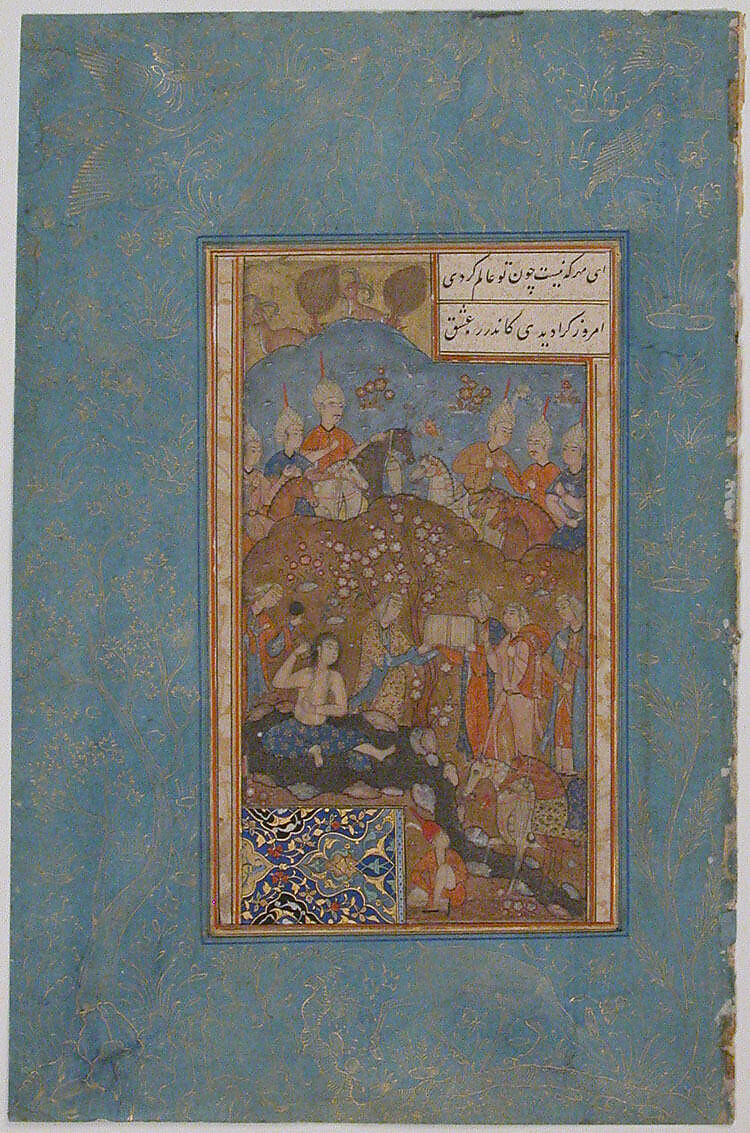 ای مه که نیست چون تو عالم گردی
امروز کرا دیدی کاندر ره عشق